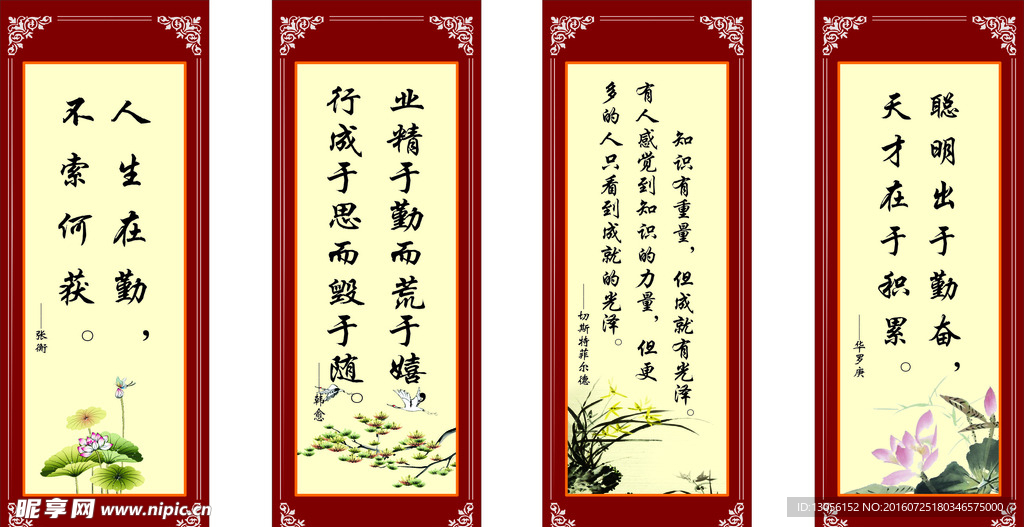 人生在勤，
不索何获。
——张衡
业精于勤而荒于嬉
行成于思而毁于随。
——韩愈
知识有重量，但成就有光泽。
有人感觉到知识的力量，但更
多的人只看到成就的光泽。
——切斯特菲尔德
聪明出于勤奋，
天才在于积累。
——华罗庚
昵享网 www.nipic.cn
ID:13056152 NO:20160725180346575000